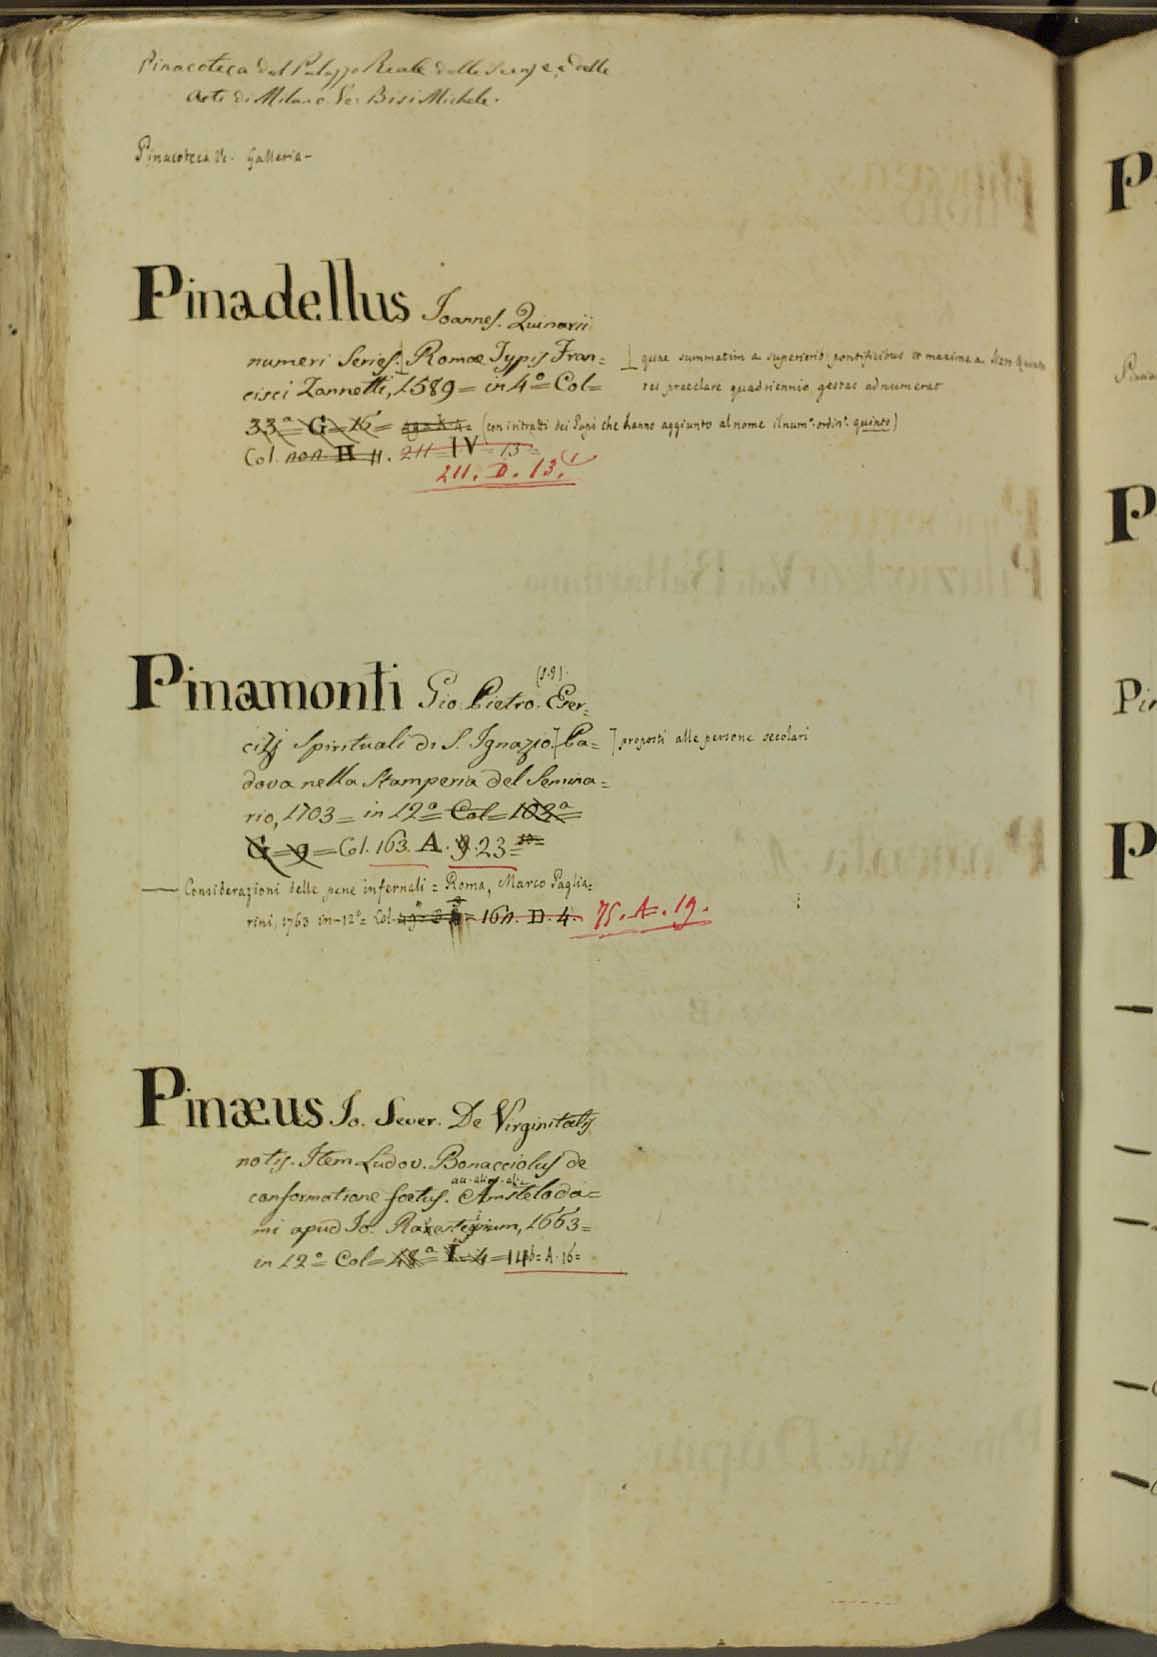 Pinacoteca del Palazzo Reale delle Scienze, e delle
Arti di Milano Ve. Bisi Michele.
Pinacoteca Ve. Galleria-
Pinadellus Joannes. Quinarii
numeri Series. Romæ Typis Fran=
cisci Zannetti, 1589= in 4º= Col=
quae summatim a superiorib: pontificibus et maxime a
res praeclare quadriennio gestas adnumerat
33ª= G= 16=
(con i ritratti dei Papi che hanno aggiunto al nome il num.º ordin.º quinto)
Col. H 11. 211= IV= 13=
211. D. 13.
Pinamonti Gio: Pietro. Eser=
cizj Spirituali di S. Ignazio. Pa=
proposti alle persone secolari
dova nella Stamperia del Semina=
rio, 1703= in 12º= Col= 103ª=
G= 9= Col. 163. A. 9. 23=
Considerazioni delle pene infernali = Roma, Marco Paglia=
rini, 1763 in-12º= Col. D. 4. 75. A. 19.
Pinæus Jo. Sever. De Virginitatis
notis. Item Ludov. Bonacciolus de
conformatione foetus. Amsteloda=
mi apud Jo. 1663=
in 12º= Col= 48ª= I= 4= 146= A. 16=